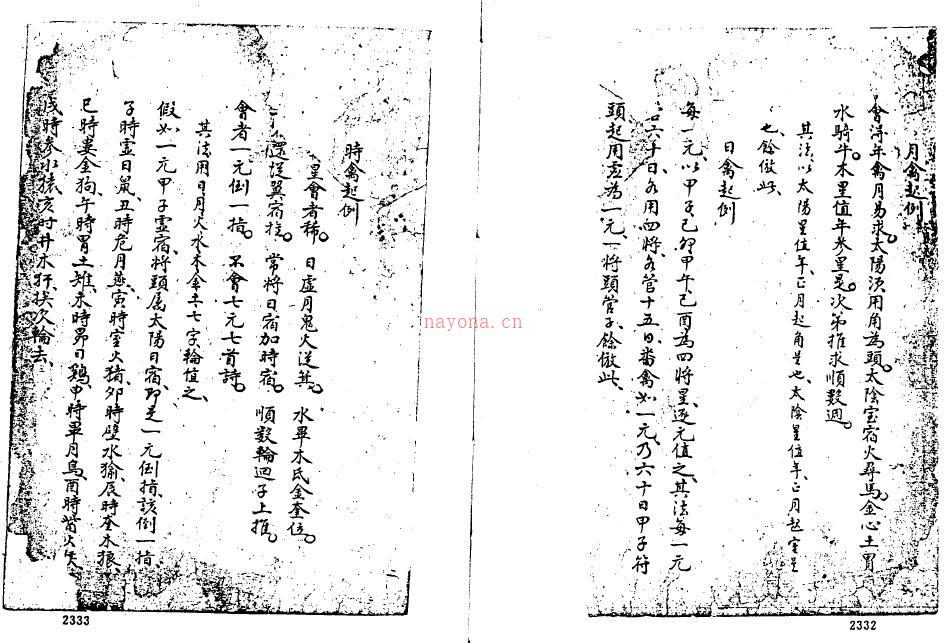 月禽起例
會得年禽月易求。太陽須用角為頭。太陰室宿火尋馬。金心土胃
水騎牛。木星值年參星是。次第推求順數週。
其法以太陽星位年、正月起角星也、太陰星位年、正月起室星
也、餘倣此、
日禽起例
每一元、以甲子己卯甲午己酉為四將星、逐元值之、其法每一元
六十日、各用四將、各管十五日、番禽如一元、乃六十日甲子符
頭起用虛為一元、一將頭管子、餘倣此、
2332
時禽起例
星會者稀。日虛月鬼火從箕。水畢木氐金奎位。
還從翼宿推。常將日宿加時宿。順數輪迴子上推。
會者一元倒一指。不會七元七首詩。
其法用日月火水木金土七字輪值之、
假如一元甲子虛宿、將頭屬太陽日宿、即是一元倒指、該倒一指
子時虛日鼠、丑時危月燕、寅時室火猪、卯時壁水㺄、辰時奎木狼、
巳時婁金狗、午時胃土雉、未時昴日鷄、申時畢月烏、酉時觜火
戌時參水猿、亥時井木犴、挨次輪去、
二
2333
nayona.cn